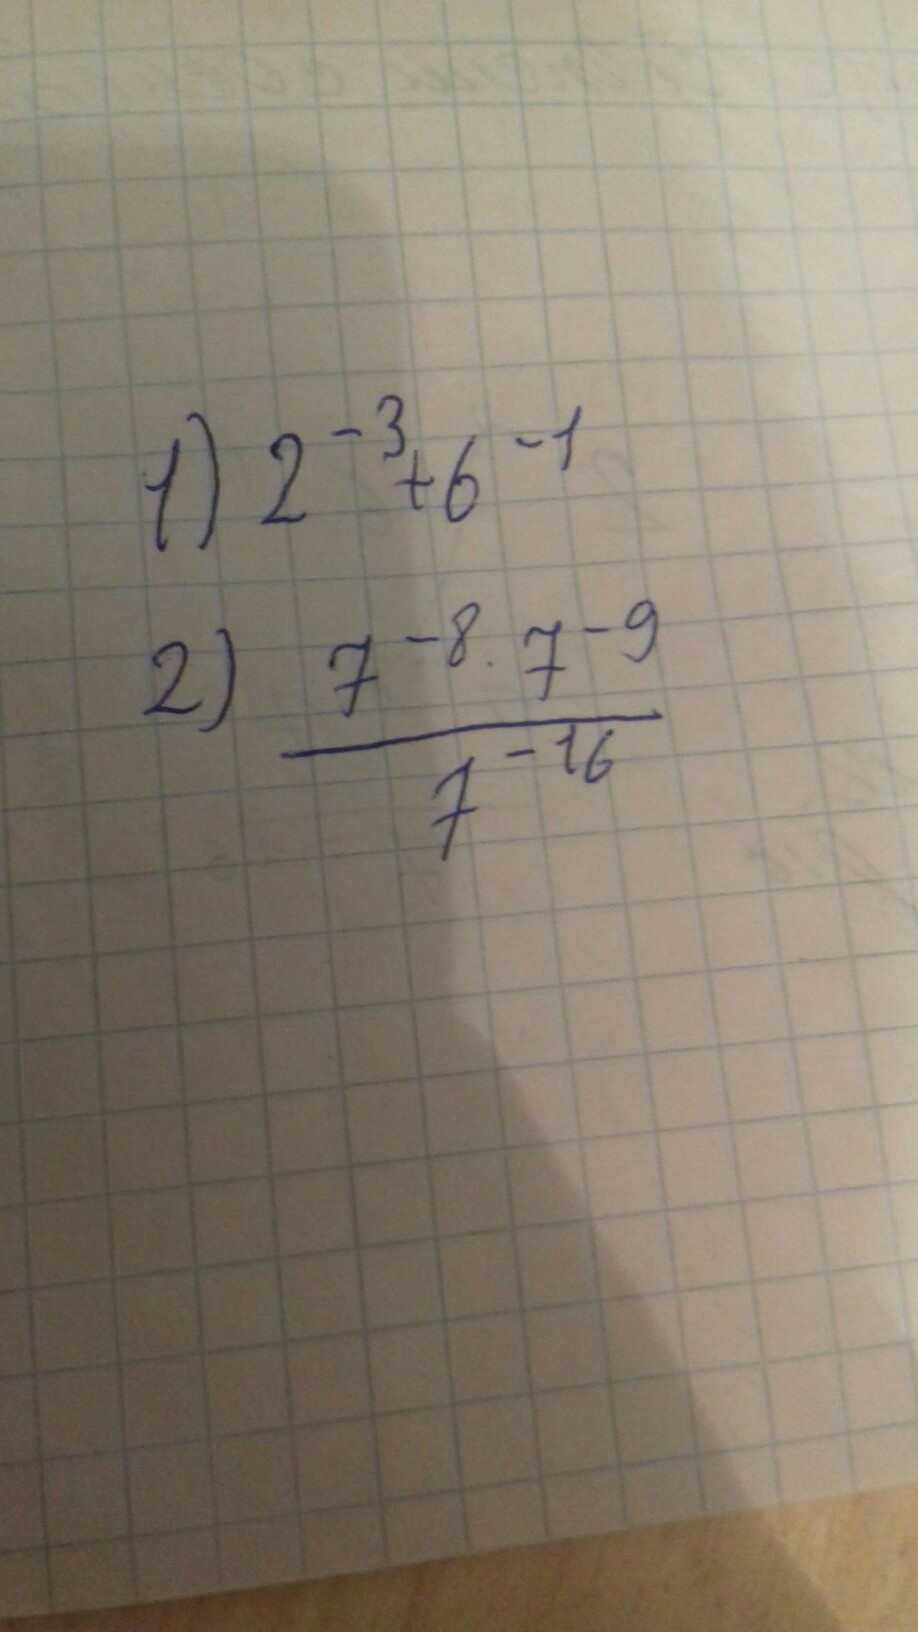 1) 2⁻³+6⁻¹
2) 7⁻⁸·7⁻⁹
7⁻¹⁶